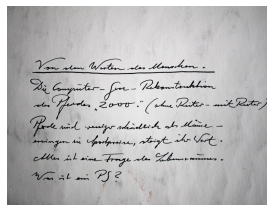 Von dem Westen des Menschen.
Die Computer - Gen - Rekonstruktion
des Pferdes „2000“: (ohne Reiter - mit Reiter)
Pferde sind weniger schädlich als
in steigt ihr Wert.
Alles ist eine Frage des
Was ist ein PS?